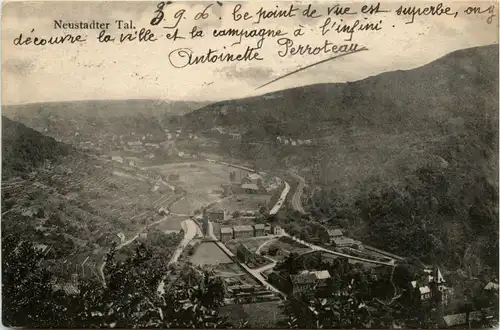 Neustadter Tal.
3.9.06. Ce point de vue est superbe, on y
découvre la ville et la campagne à l'infini.
Antoinette Perroteau